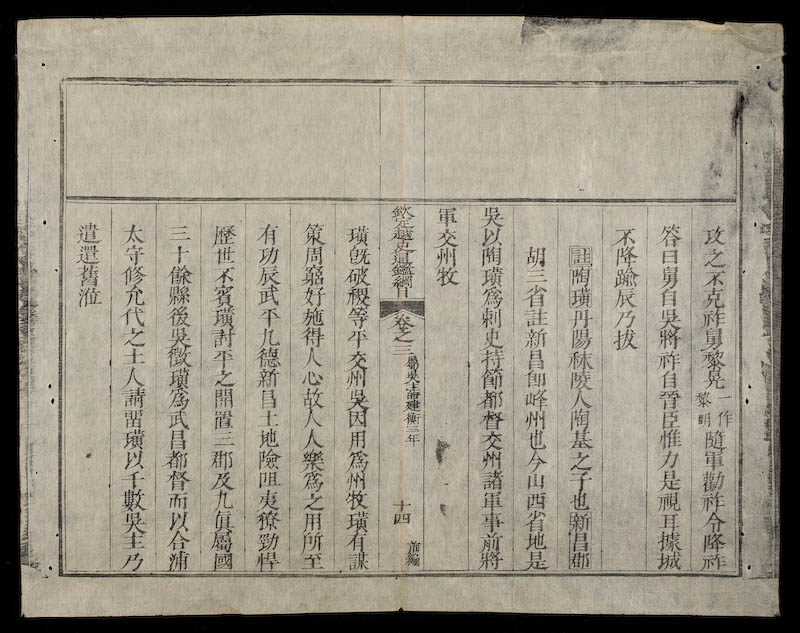 攻之不克祚舅黎晃一作黎明隨軍勸祚令降祚
答曰舅自吳將祚自晉臣惟力是視耳據城
不降踰辰乃拔
註陶璜丹陽秣陵人陶基之子也新昌郡
胡三省註新昌卽峰州也今山西省地是
吳以陶璜爲刺史持節都督交州諸軍事前將
軍交州牧
欽定越史通鑑綱目 卷之三 屬吳主晧建衡三年 十四 前編
璜旣破稷等平交州吳因用爲州牧璜有謀
策周窮好施得人心故人人樂爲之用所至
有功辰武平九德新昌土地險阻夷獠勁悍
歷世不賓璜討平之開置三郡及九眞屬國
三十餘縣後吳徵璜爲武昌都督而以合浦
太守修允代之土人請畱璜以千數吳主乃
遣還舊涖